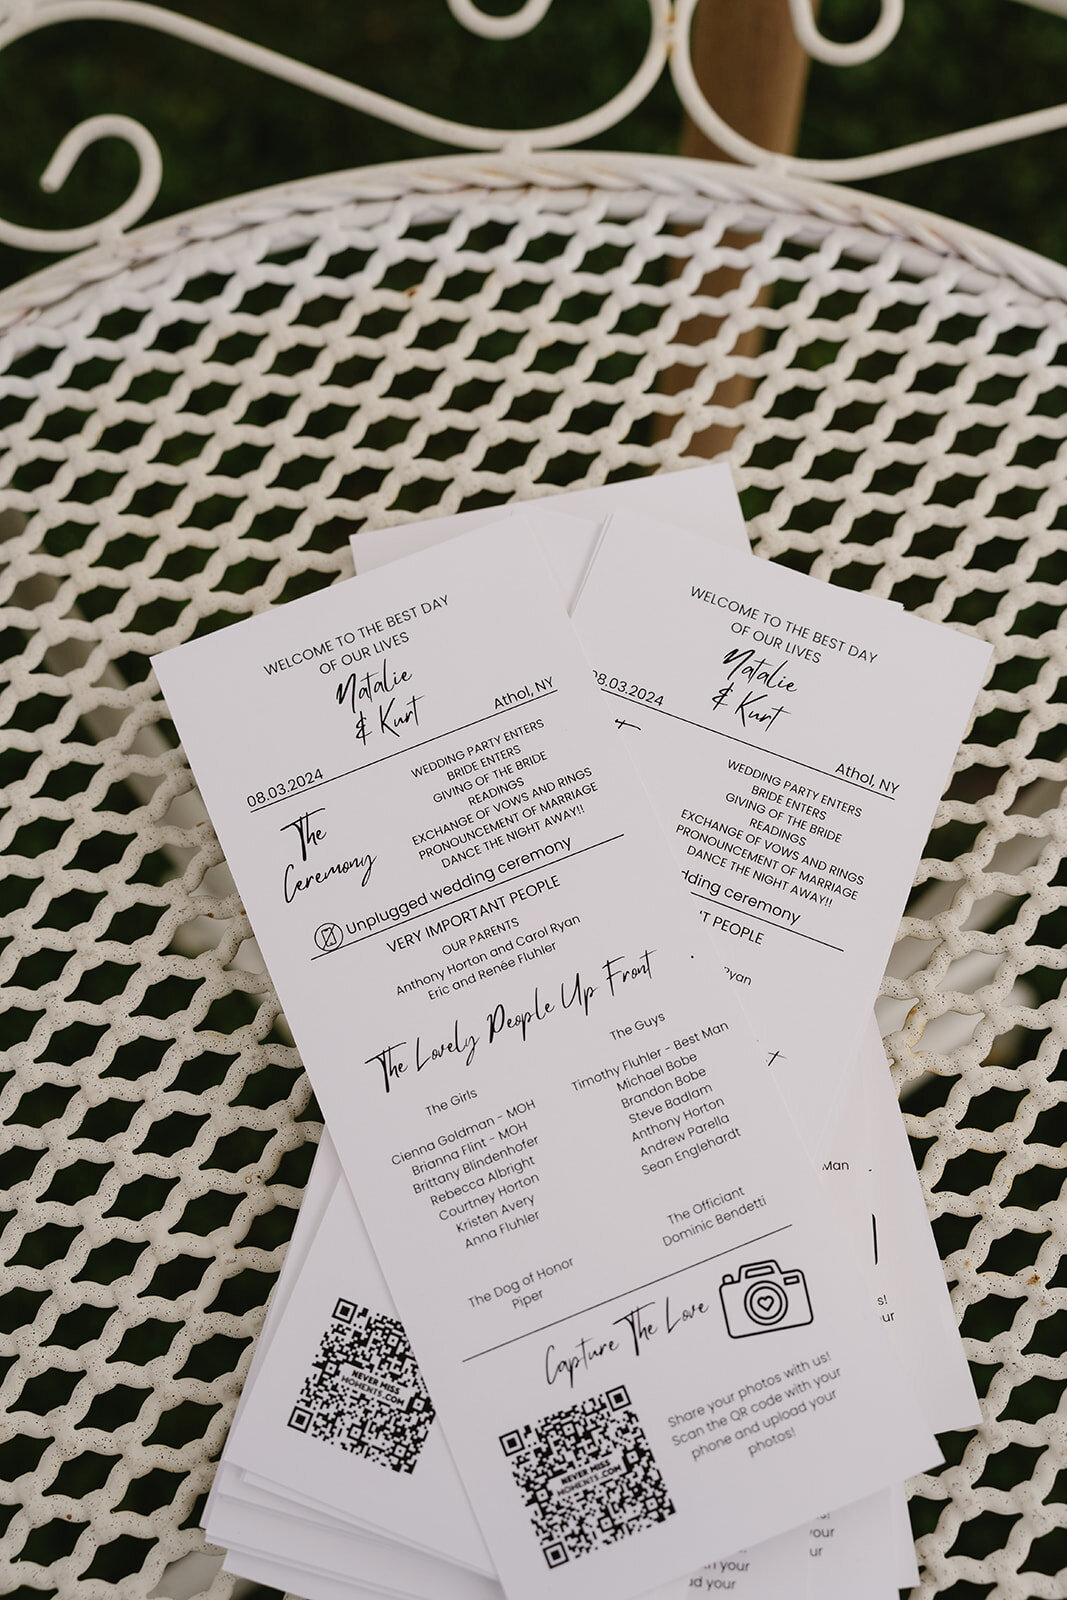 WELCOME TO THE BEST DAY
OF OUR LIVES
Natalie
& Kurt
08.03.2024
Athol, NY
The
Ceremony
WEDDING PARTY ENTERS
BRIDE ENTERS
GIVING OF THE BRIDE
READINGS
EXCHANGE OF VOWS AND RINGS
PRONOUNCEMENT OF MARRIAGE
DANCE THE NIGHT AWAY!!
Unplugged wedding ceremony
VERY IMPORTANT PEOPLE
OUR PARENTS
Anthony Horton and Carol Ryan
Eric and Renée Fluhler
The Lovely People Up Front
The Girls
Cienna Goldman - MOH
Brianna Flint - MOH
Brittany Blindenhofer
Rebecca Albright
Courtney Horton
Kristen Avery
Anna Fluhler
The Guys
Timothy Fluhler - Best Man
Michael Bobe
Brandon Bobe
Steve Badlam
Anthony Horton
Andrew Parella
Sean Englehardt
The Dog of Honor
Piper
The Officiant
Dominic Bendetti
Capture The Love
NEVER MISS
MOMENTS.COM
Share your photos with us!
Scan the QR code with your
phone and upload your
photos!
WELCOME TO THE BEST DAY
OF OUR LIVES
Natalie
& Kurt
08.03.2024
Athol, NY
WEDDING PARTY ENTERS
BRIDE ENTERS
GIVING OF THE BRIDE
READINGS
EXCHANGE OF VOWS AND RINGS
PRONOUNCEMENT OF MARRIAGE
DANCE THE NIGHT AWAY!!
ceremony
PEOPLE
Ryan
Man
NEVER MISS
MOMENTS.COM
your
your